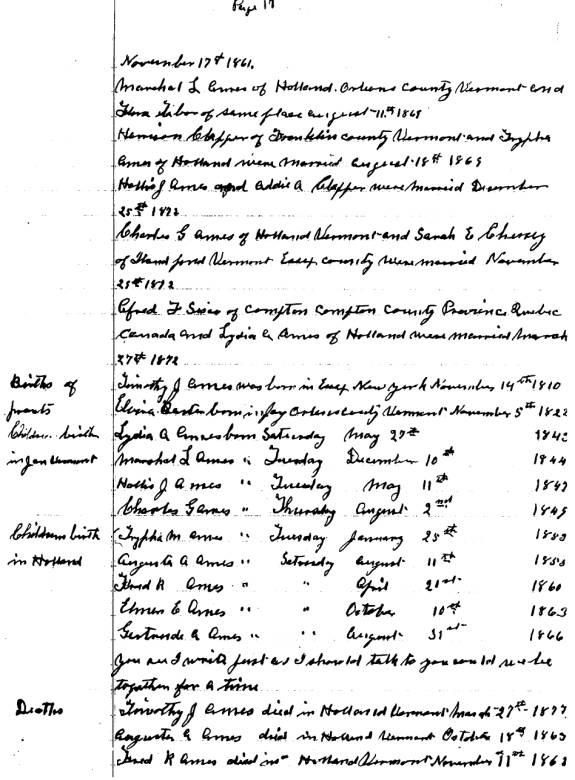 Page 17
November 17th 1861.
Marshal L Ames of Holland. Orleans County Vermont and
Flora Tabor of same place august 11th 1869
Henison Clapper of Franklin county Vermont and Tryphe
Ames of Holland were married august 18th 1869
Hollis J Ames and Addie A Clapper were married December
25th 1872
Charles G Ames of Holland Vermont and Sarah E
of Vermont Essex county were married November
1872
F of Compton Compton County Province Quebec
Canada and Lydia A Ames of Holland were married March
27th 1872
Births of Timothy J Ames was born in Essex New york November 14th 1810
born in Jay Orleans County Vermont November 5th 1822
Childrens birth Lydia A Ames born Saturday May 27th
in Jay Vermont Marshal L Ames " Tuesday December 10th 1844
Hollis J Ames " Tuesday May 11th
Charles G Ames " Thursday August 2nd 1849
Childrens birth Tryphe M Ames " Tuesday January 25th
in Holland Augusta A Ames " Saturday August 11th
Fred R Ames " " April 21st 1860
Elmer E Ames " " October 10th 1863
Gertrude A Ames " " August 31st 1866
you see I write just as I should talk to you could we be
together for a time
Deaths Timothy J Ames died in Holland Vermont March 27th 1877
Augusta A Ames died in Holland Vermont October 18th 1863
Fred R Ames died in Holland Vermont November 11th